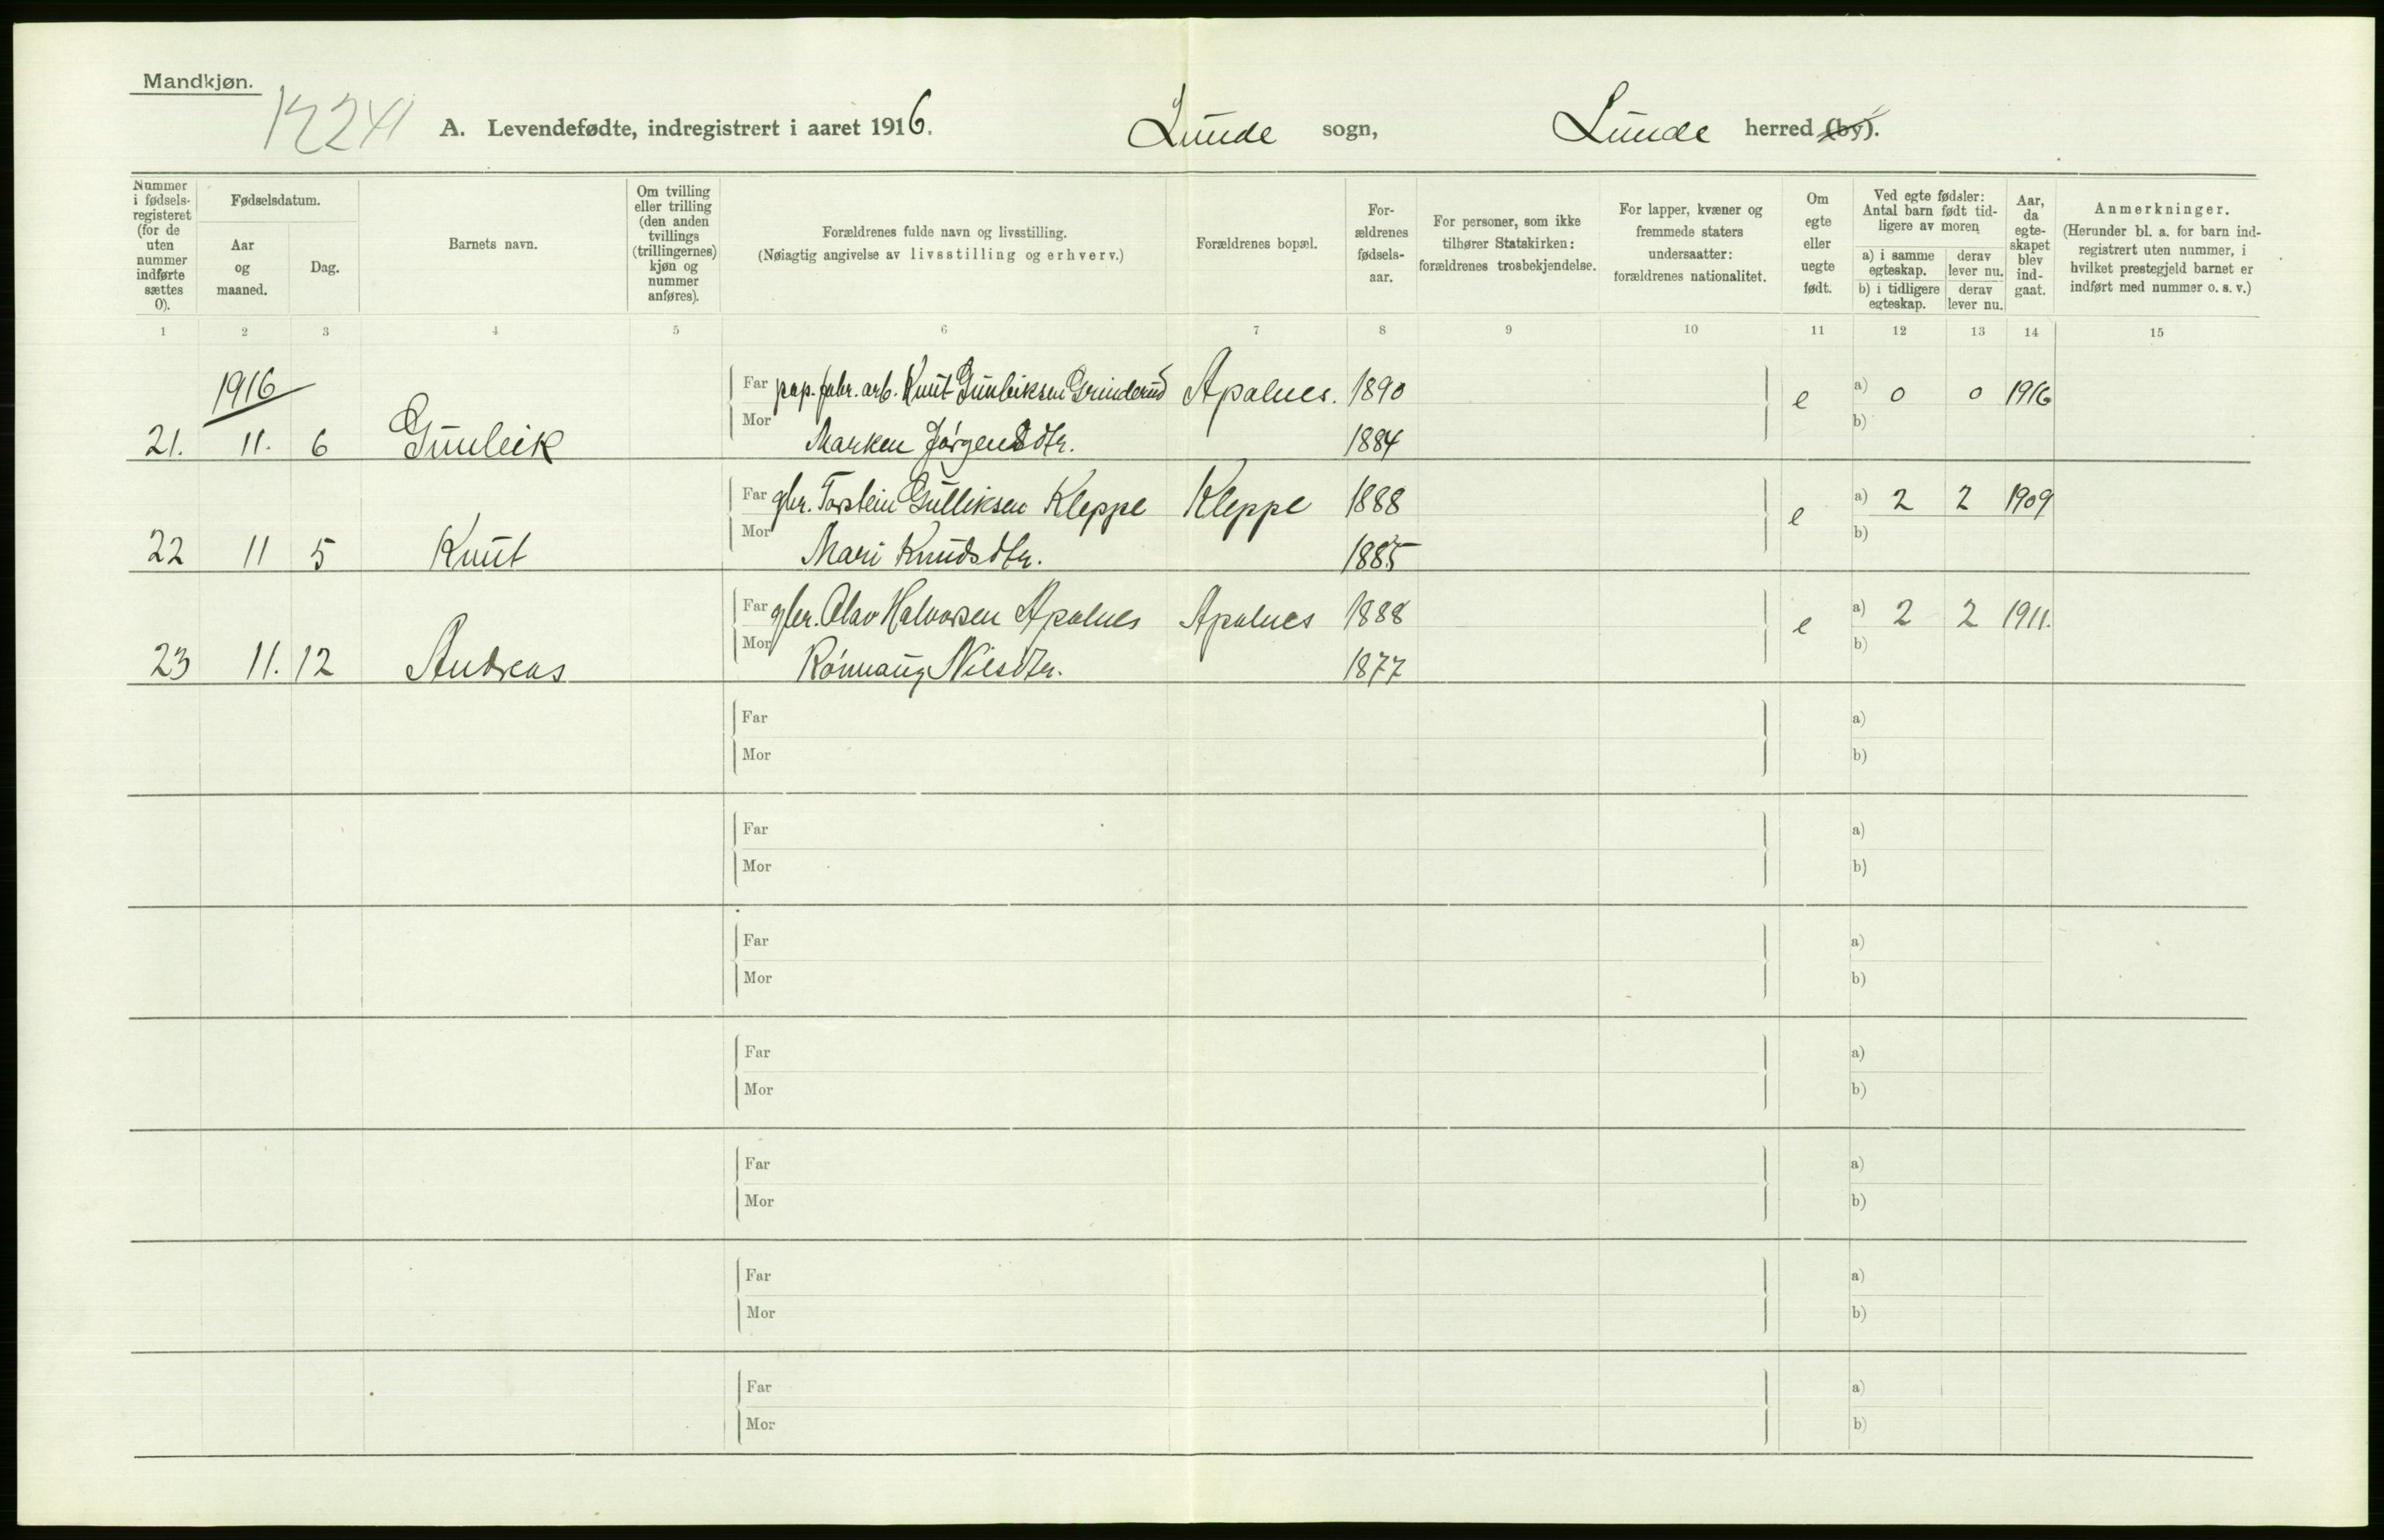 Mandkjøn.
A. Levendefødte, indregistrert i aaret 1916. Lunde sogn, Lunde herred (by).
Nummer i fødsels-registeret (for de uten nummer indførte sættes 0).
Fødselsdatum.
Aar og maaned.
Dag.
Barnets navn.
Om tvilling eller trilling (den anden tvillings (trillingernes) kjøn og nummer anføres).
Forældrenes fulde navn og livsstilling.
(Nøiagtig angivelse av livsstilling og erhverv.)
Forældrenes bopæl.
For-ældrenes fødsels-aar.
For personer, som ikke tilhører Statskirken: forældrenes trosbekjendelse.
For lapper, kvæner og fremmede staters undersaatter: forældrenes nationalitet.
Om egte eller uegte født.
Ved egte fødsler: Antal barn født tid-ligere av moren
a) i samme egteskap. derav lever nu.
b) i tidligere egteskap. derav lever nu.
Aar, da egte-skapet blev ind-gaat.
Anmerkninger.
(Herunder bl. a. for barn ind-registrert uten nummer, i hvilket prestegjeld barnet er indført med nummer o. s. v.)
1 2 3 4 5 6 7 8 9 10 11 12 13 14 15
1916
Far pap. fabr. arb. Knut Gunleiksen Grinderud Apalnes. 1890 e a) 0 0 1916
21. 11. 6 Gunleik Mor Marken Jörgensdtr. 1884 b)
Far gbr. Torstein Gulliksen Kleppe Kleppe 1888 e a) 2 2 1909
22 11 5 Knut Mor Mari Knudsdtr. 1885 b)
Far gbr. Olav Halvorsen Apalnes Apalnes 1888 e a) 2 2 1911.
23 11. 12 Andreas Mor Rönnaug Nilsdtr. 1877 b)
Far a)
Mor b)
Far a)
Mor b)
Far a)
Mor b)
Far a)
Mor b)
Far a)
Mor b)
Far a)
Mor b)
Far a)
Mor b)